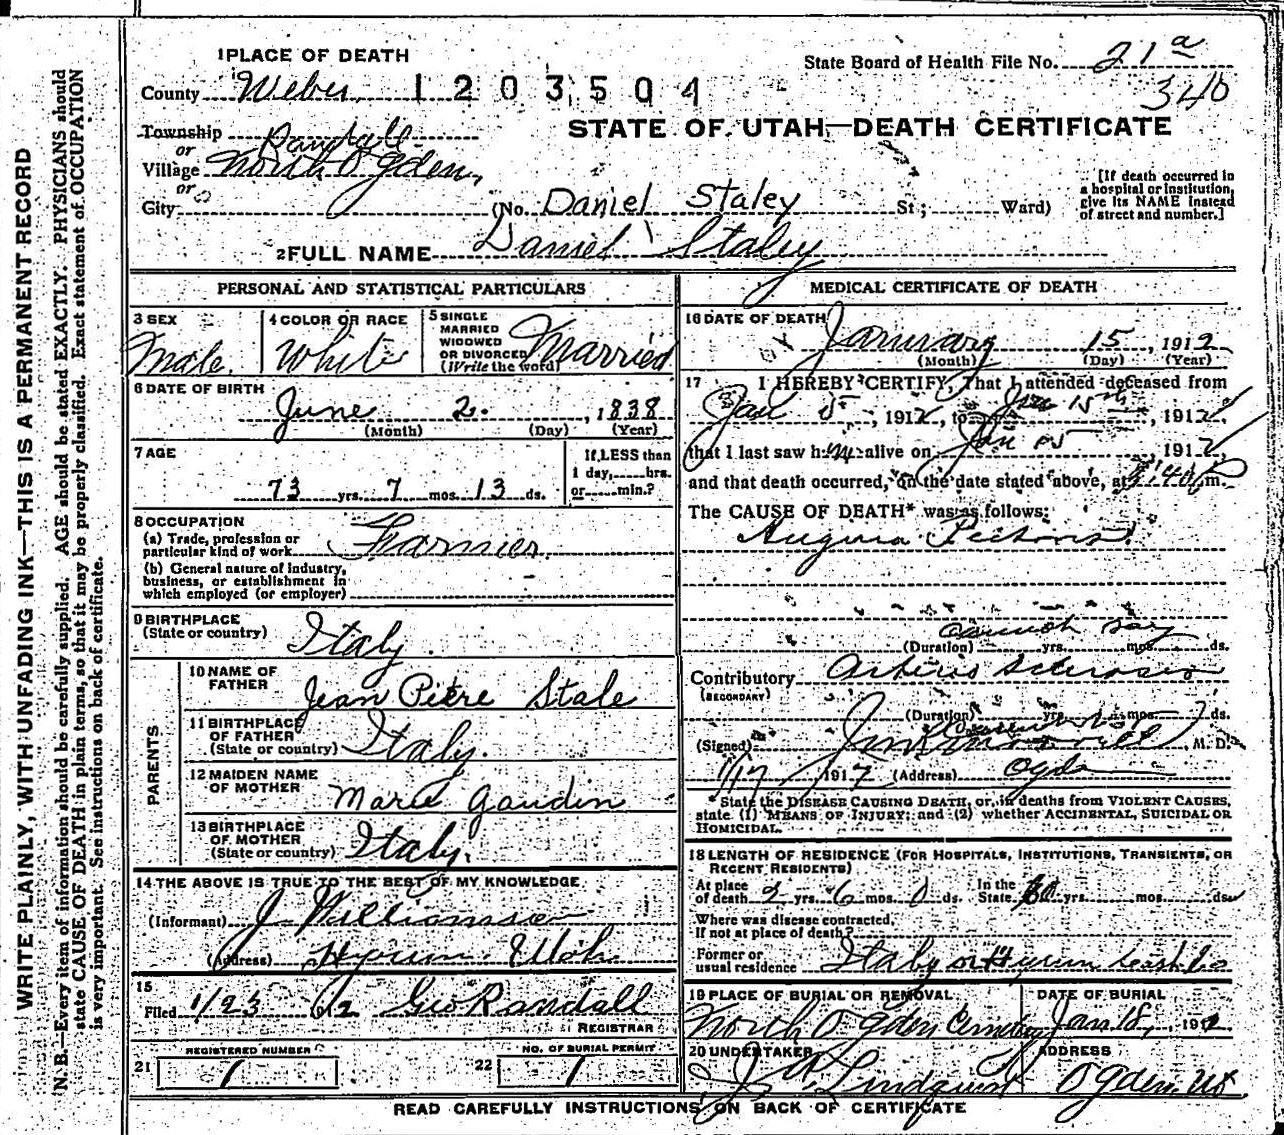 WRITE PLAINLY, WITH UNFADING INK—THIS IS A PERMANENT RECORD
N. B.—Every item of information should be carefully supplied. AGE should be stated EXACTLY. PHYSICIANS should
state CAUSE OF DEATH in plain terms, so that it may be properly classified. Exact statement of OCCUPATION
is very important. See instructions on back of certificate.
1 PLACE OF DEATH
State Board of Health File No. 21a
County Weber 1203504
340
STATE OF UTAH—DEATH CERTIFICATE
Township
or
Village North Ogden,
or
City
(No. Daniel Staley St; Ward)
[If death occurred in
a hospital or institution,
give its NAME instead
of street and number.]
2 FULL NAME Daniel Staley
PERSONAL AND STATISTICAL PARTICULARS
3 SEX
Male.
4 COLOR OR RACE
White
5 SINGLE
MARRIED
WIDOWED
OR DIVORCED
(Write the word)
Married
6 DATE OF BIRTH
June 2. , 1838
(Month) (Day) (Year)
7 AGE
73 yrs. 7 mos. 13 ds.
If LESS than
1 day, hrs.
or min.?
8 OCCUPATION
(a) Trade, profession or
particular kind of work Farmer.
(b) General nature of industry,
business, or establishment in
which employed (or employer)
9 BIRTHPLACE
(State or country) Italy.
PARENTS
10 NAME OF
FATHER Jean Piere Stale
11 BIRTHPLACE
OF FATHER
(State or country) Italy.
12 MAIDEN NAME
OF MOTHER Marie Gaudin
13 BIRTHPLACE
OF MOTHER
(State or country) Italy.
14 THE ABOVE IS TRUE TO THE BEST OF MY KNOWLEDGE
(Informant) J Williamson
(Address) Hyrum Utah
15
Filed 1/23 1912 Geo Randall
REGISTRAR
21 REGISTERED NUMBER
1
22 NO. OF BURIAL PERMIT
1
MEDICAL CERTIFICATE OF DEATH
16 DATE OF DEATH
January 15 , 1912
(Month) (Day) (Year)
17 I HEREBY CERTIFY, That I attended deceased from
Jan 5 , 1912, to Jan 15th, 1912,
that I last saw him alive on Jan 1912,
and that death occurred, on the date stated above, at m.
The CAUSE OF DEATH* was as follows:
Angina Pectoris
Cannot say
(Duration) yrs. mos. ds.
Contributory Arterio Sclerosis
(SECONDARY)
(Duration) yrs. mos. ds.
(Signed) , M. D.
1/17 1912 (Address) Ogden
* State the DISEASE CAUSING DEATH, or, in deaths from VIOLENT CAUSES,
state (1) MEANS OF INJURY; and (2) whether ACCIDENTAL, SUICIDAL OR
HOMICIDAL.
18 LENGTH OF RESIDENCE (FOR HOSPITALS, INSTITUTIONS, TRANSIENTS, OR
RECENT RESIDENTS)
At place
of death 2 yrs. 6 mos. 0 ds.
In the
State yrs. mos. ds.
Where was disease contracted,
If not at place of death?
Former or
usual residence Italy or Hyrum Cash Co
19 PLACE OF BURIAL OR REMOVAL
North Ogden Cemetery
DATE OF BURIAL
Jan 18, 1912
20 UNDERTAKER
Lindquist
ADDRESS
Ogden Ut
READ CAREFULLY INSTRUCTIONS ON BACK OF CERTIFICATE